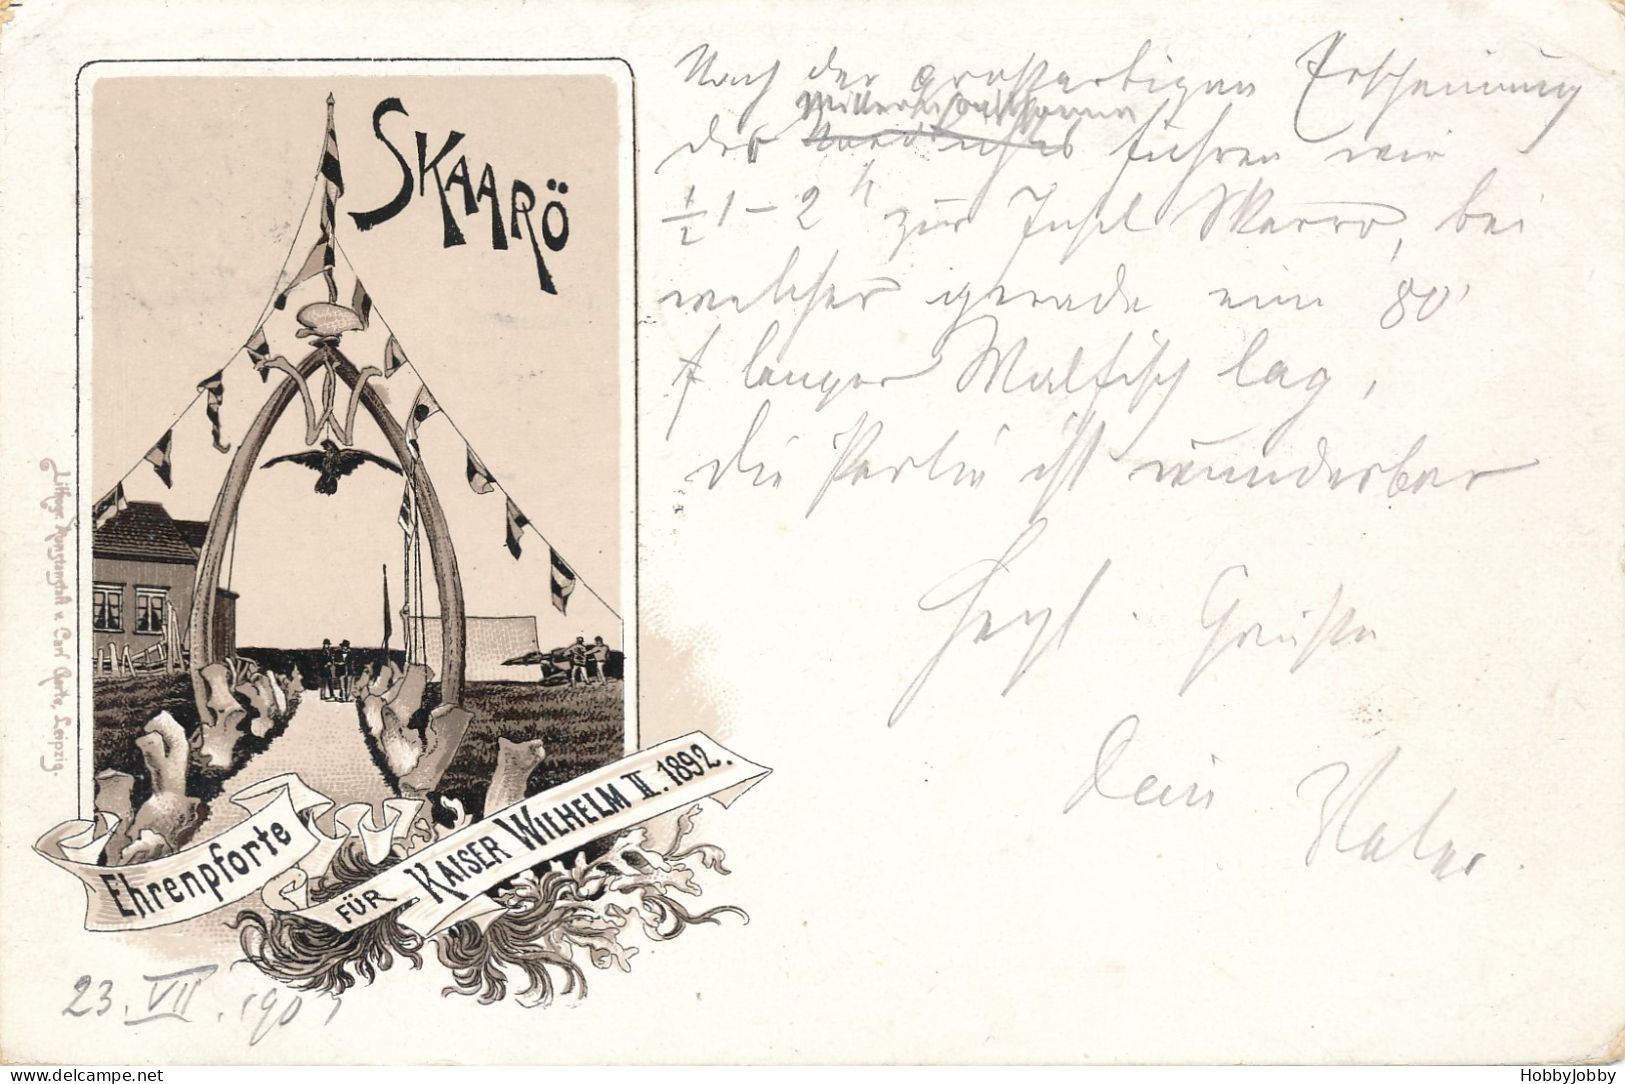 SKAARÖ
Nach der großartigen Erscheinung
Mitternachtssonne
der Nordlichtes fuhren wir
½1 – 2 h zur Insel Skarrö, bei
welcher gerade ein 80'
langer Walfisch lag,
die Partie ist wunderbar
Herzl. Grüße
Dein Vater.
Ehrenpforte
FÜR KAISER WILHELM II. 1892.
Lithogr. Kunstanstalt v. Carl Garte, Leipzig.
23. VII. 1901
HobbyJobby